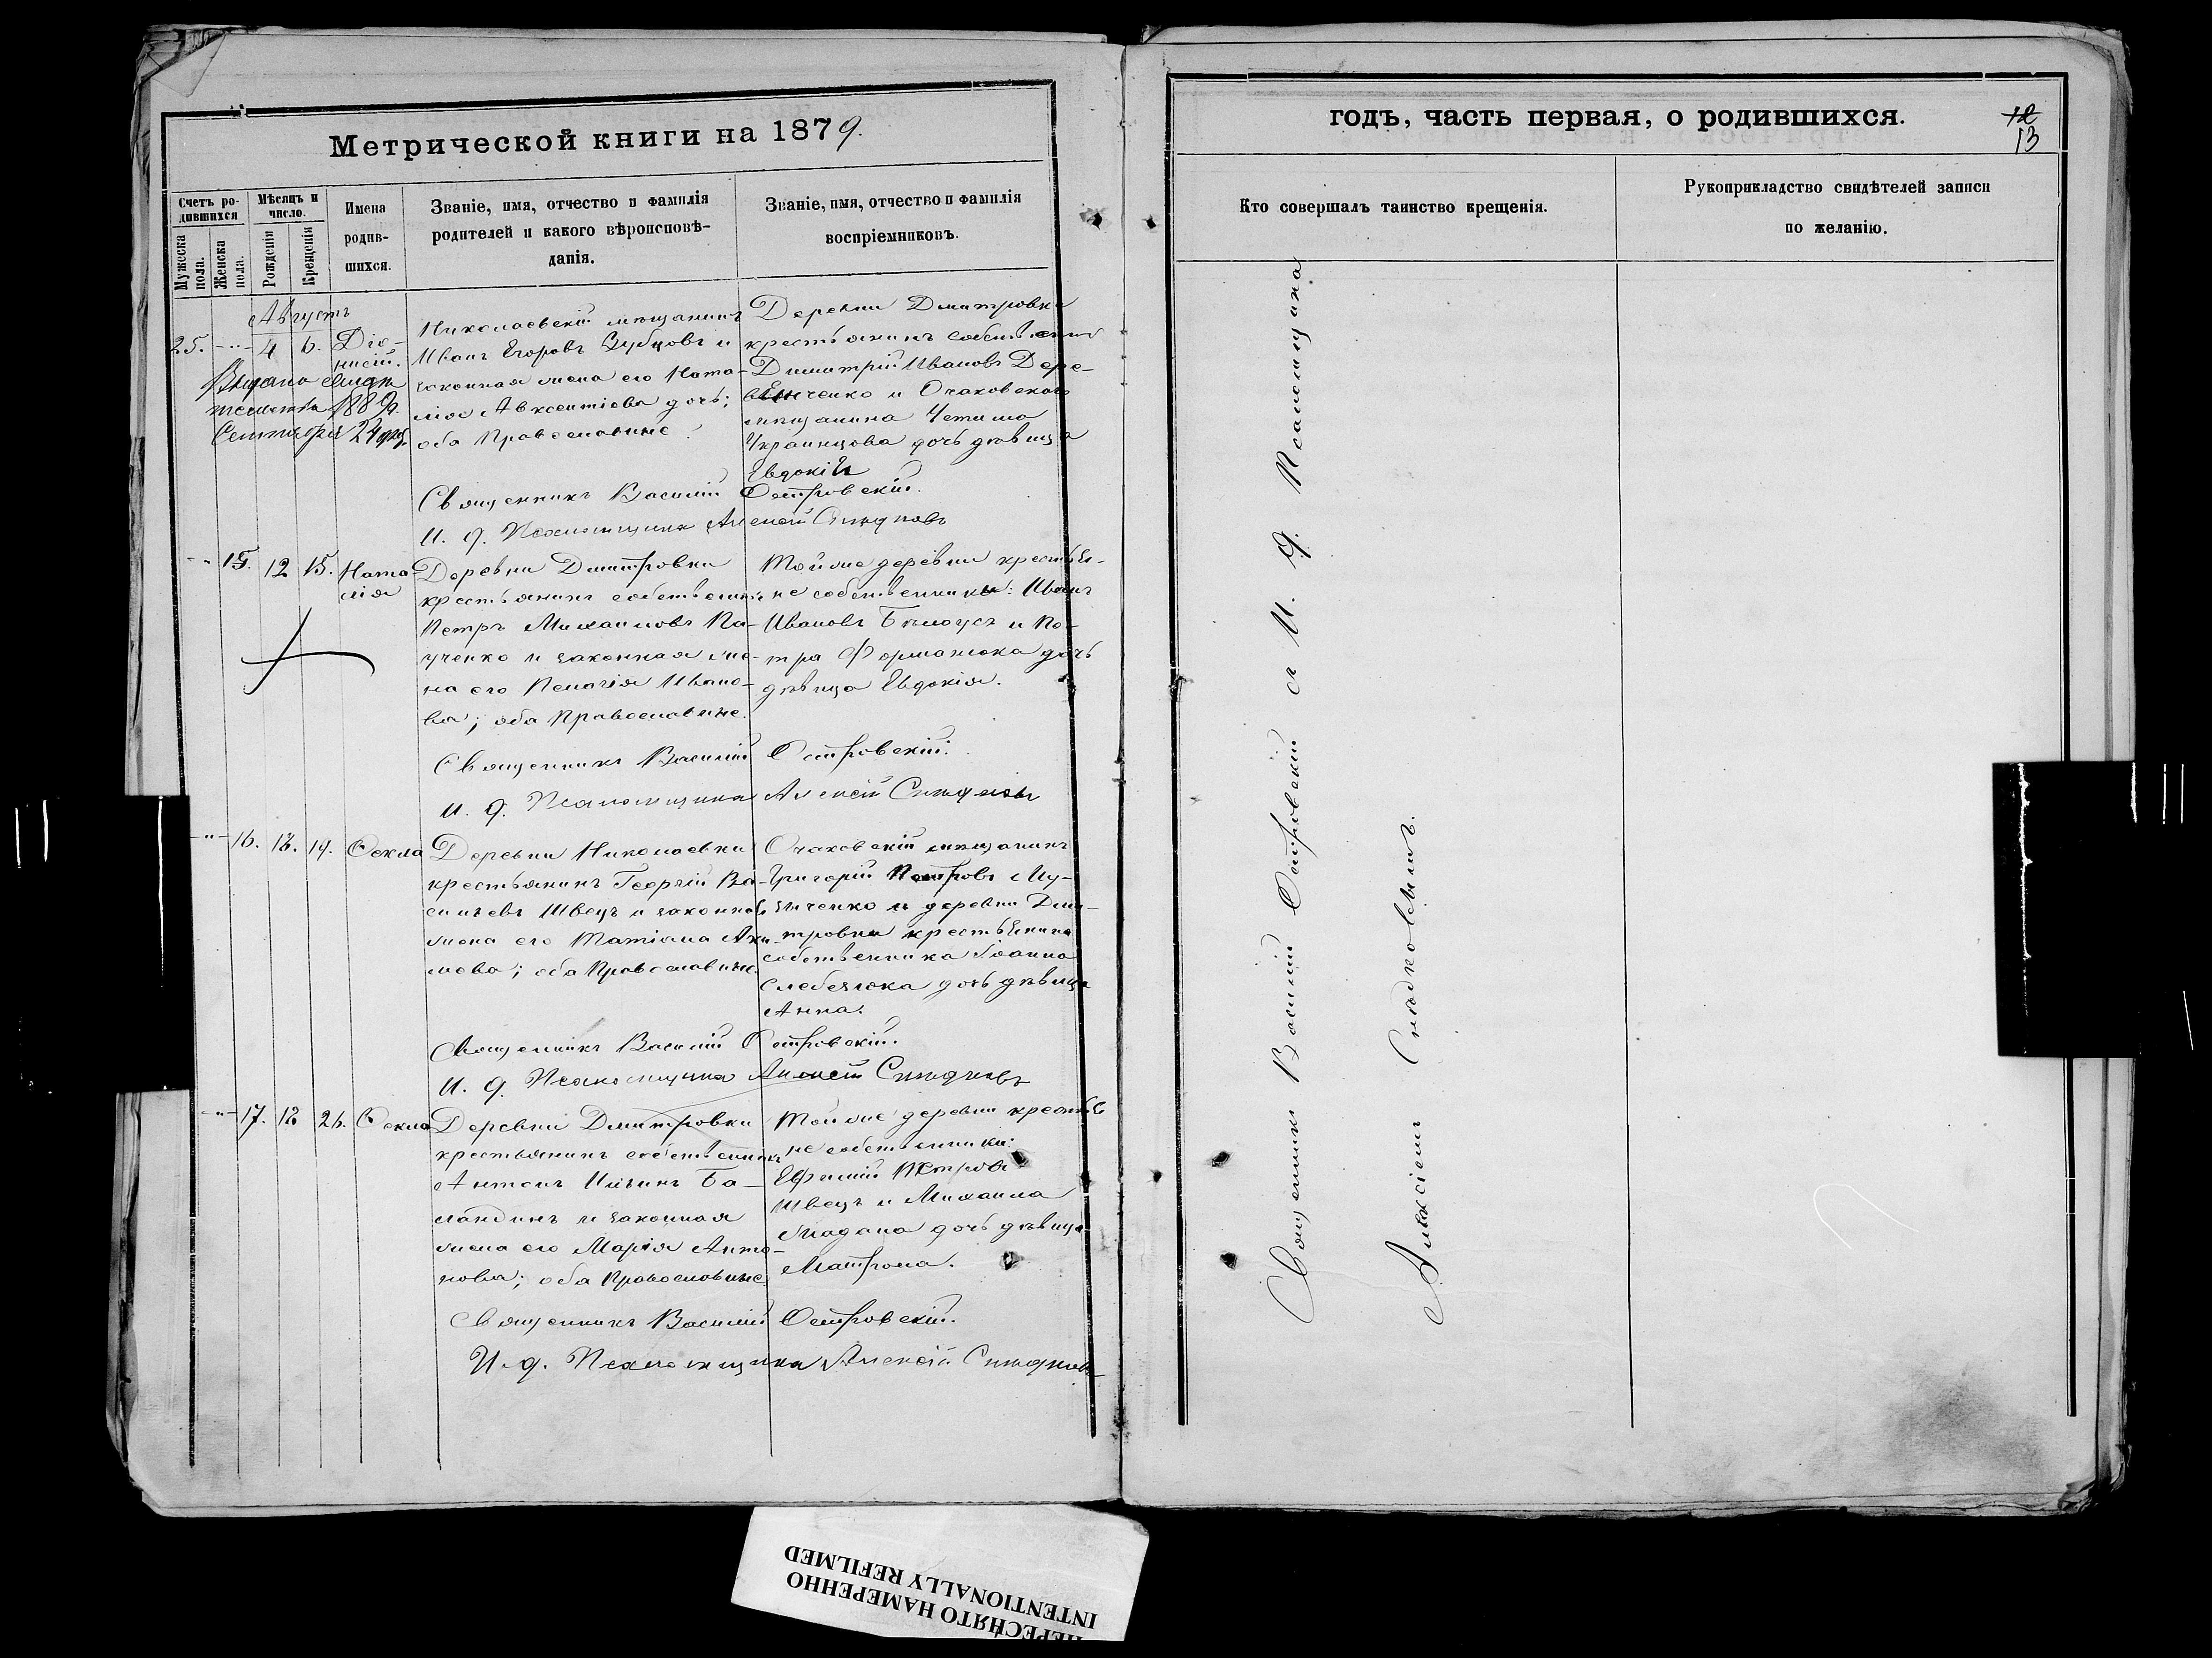 Метрической книги на 1879.
Счетъ родившихся
Мужеска пола.
Женска пола.
Мѣсяцъ и число.
Рожденія
Крещенія
Имена родившихся.
Званіе, имя, отчество и фамилія
родителей и какого вѣроисповѣ-
данія.
Званіе, имя, отчество и фамилія
воспріемниковъ.
Августъ
25. -"- 4 6. Діо-
нисій.
Выдано свидѣ
тельство 1889.
Сентября 24
Николаевскій мѣщанинъ
Иванъ Егоровъ Зубцовъ и
законная жена его Ната-
лія Авксентіева дочь;
оба Православные.
Деревни Дмитровки
крестьянинъ собственникъ
Димитрій Ивановъ Дере-
и Очаковскаго
мѣщанина
Украинцова дочь дѣвица
Евдокія
Священникъ Василій Островскій.
И. д. Псаломщика Алексѣй Снѣдковъ
-"- 15. 12 15. Ната-
лія
Деревни Дмитровки
крестьянинъ собственникъ
Петръ Михаиловъ Па-
ученко и законная же-
на его Пелагія Ивано-
ва; оба Православные.
Той же деревни крестья-
не собственники: Иванъ
Ивановъ Бѣлоусъ и Пе-
тра Форманюка дочь
дѣвица Евдокія.
Священникъ Василій Островскій.
И. д. Псаломщика Алексѣй Снѣдковъ
-"- 16. 18. 19. Ѳекла
Деревни Николаевки
крестьянинъ Георгій Ва-
сильевъ Швецъ и законная
жена его Татіана Аки-
мова; оба Православные.
Очаковскій мѣщанинъ
Григорій Петровъ Му-
зыченко и деревни Дми-
тровки крестьянина
собственника Іоанна
Слебезюка дочь дѣвица
Анна.
Священникъ Василій Островскій.
И. д. Псаломщика Алексѣй Снѣдковъ
-"- 17. 18 26. Ѳекла
Деревни Дмитровки
крестьянинъ собственникъ
Антонъ Ильинъ Ба-
ландинъ и законная
жена его Марія Анто-
нова; оба Православные
Той же деревни крестья
не собственники:
Ефимій Петровъ
Швецъ и Михаила
Мадана дочь дѣвица
Матрона.
Священникъ Василій Островскій.
И. д. Псаломщика Алексѣй Снѣдковъ
годъ, часть первая, о родившихся.
12
13
Кто совершалъ таинство крещенія.
Рукоприкладство свидѣтелей записи
по желанію.
Священникъ Василій Островскій съ И. д. Псаломщика
Алексіемъ Снѣдковымъ.
ПЕРЕСНЯТО НАМЕРЕННО
INTENTIONALLY REFILMED